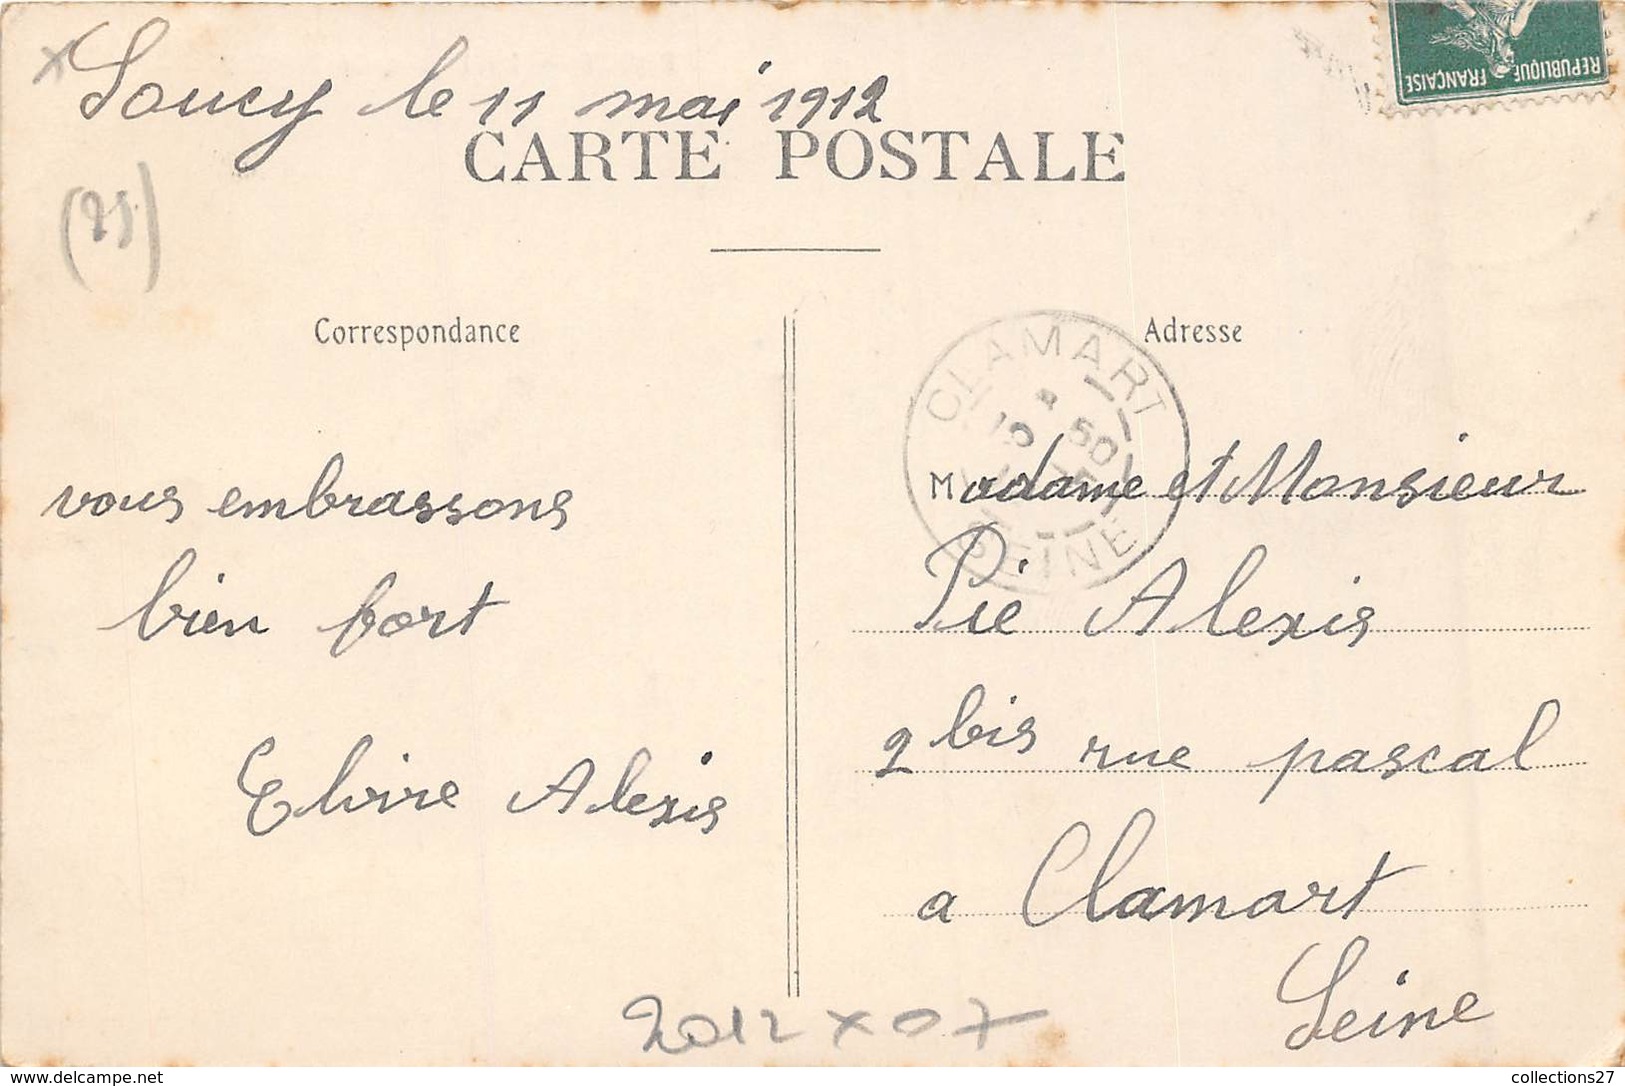 Soucy le 11 mai 1912
REPUBLIQUE FRANÇAISE
CARTE POSTALE
(25)
Correspondance
Adresse
CLAMART
10 50
SEINE
vous embrassons
bien fort
Elvire Alexis
Madame et Monsieur
Pie Alexis
2 bis rue pascal
a Clamart
Seine
2012 x 07
www.delcampe.net
collections27